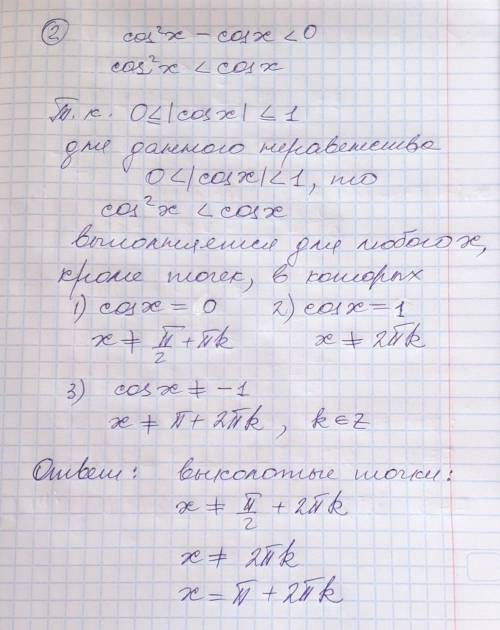 ② cos²x - cosx < 0
cos²x < cosx
Т.к. 0 ≤ |cosx| ≤ 1
для данного неравенства
0 < |cosx| < 1, то
cos²x < cosx
выполняется для любого x,
кроме точек, в которых
1) cosx = 0 2) cosx = 1
x ≠ π/2 + πk x ≠ 2πk
3) cosx ≠ -1
x ≠ π + 2πk, k ∈ Z
Ответ: выколотые точки:
x ≠ π/2 + 2πk
x ≠ 2πk
x = π + 2πk